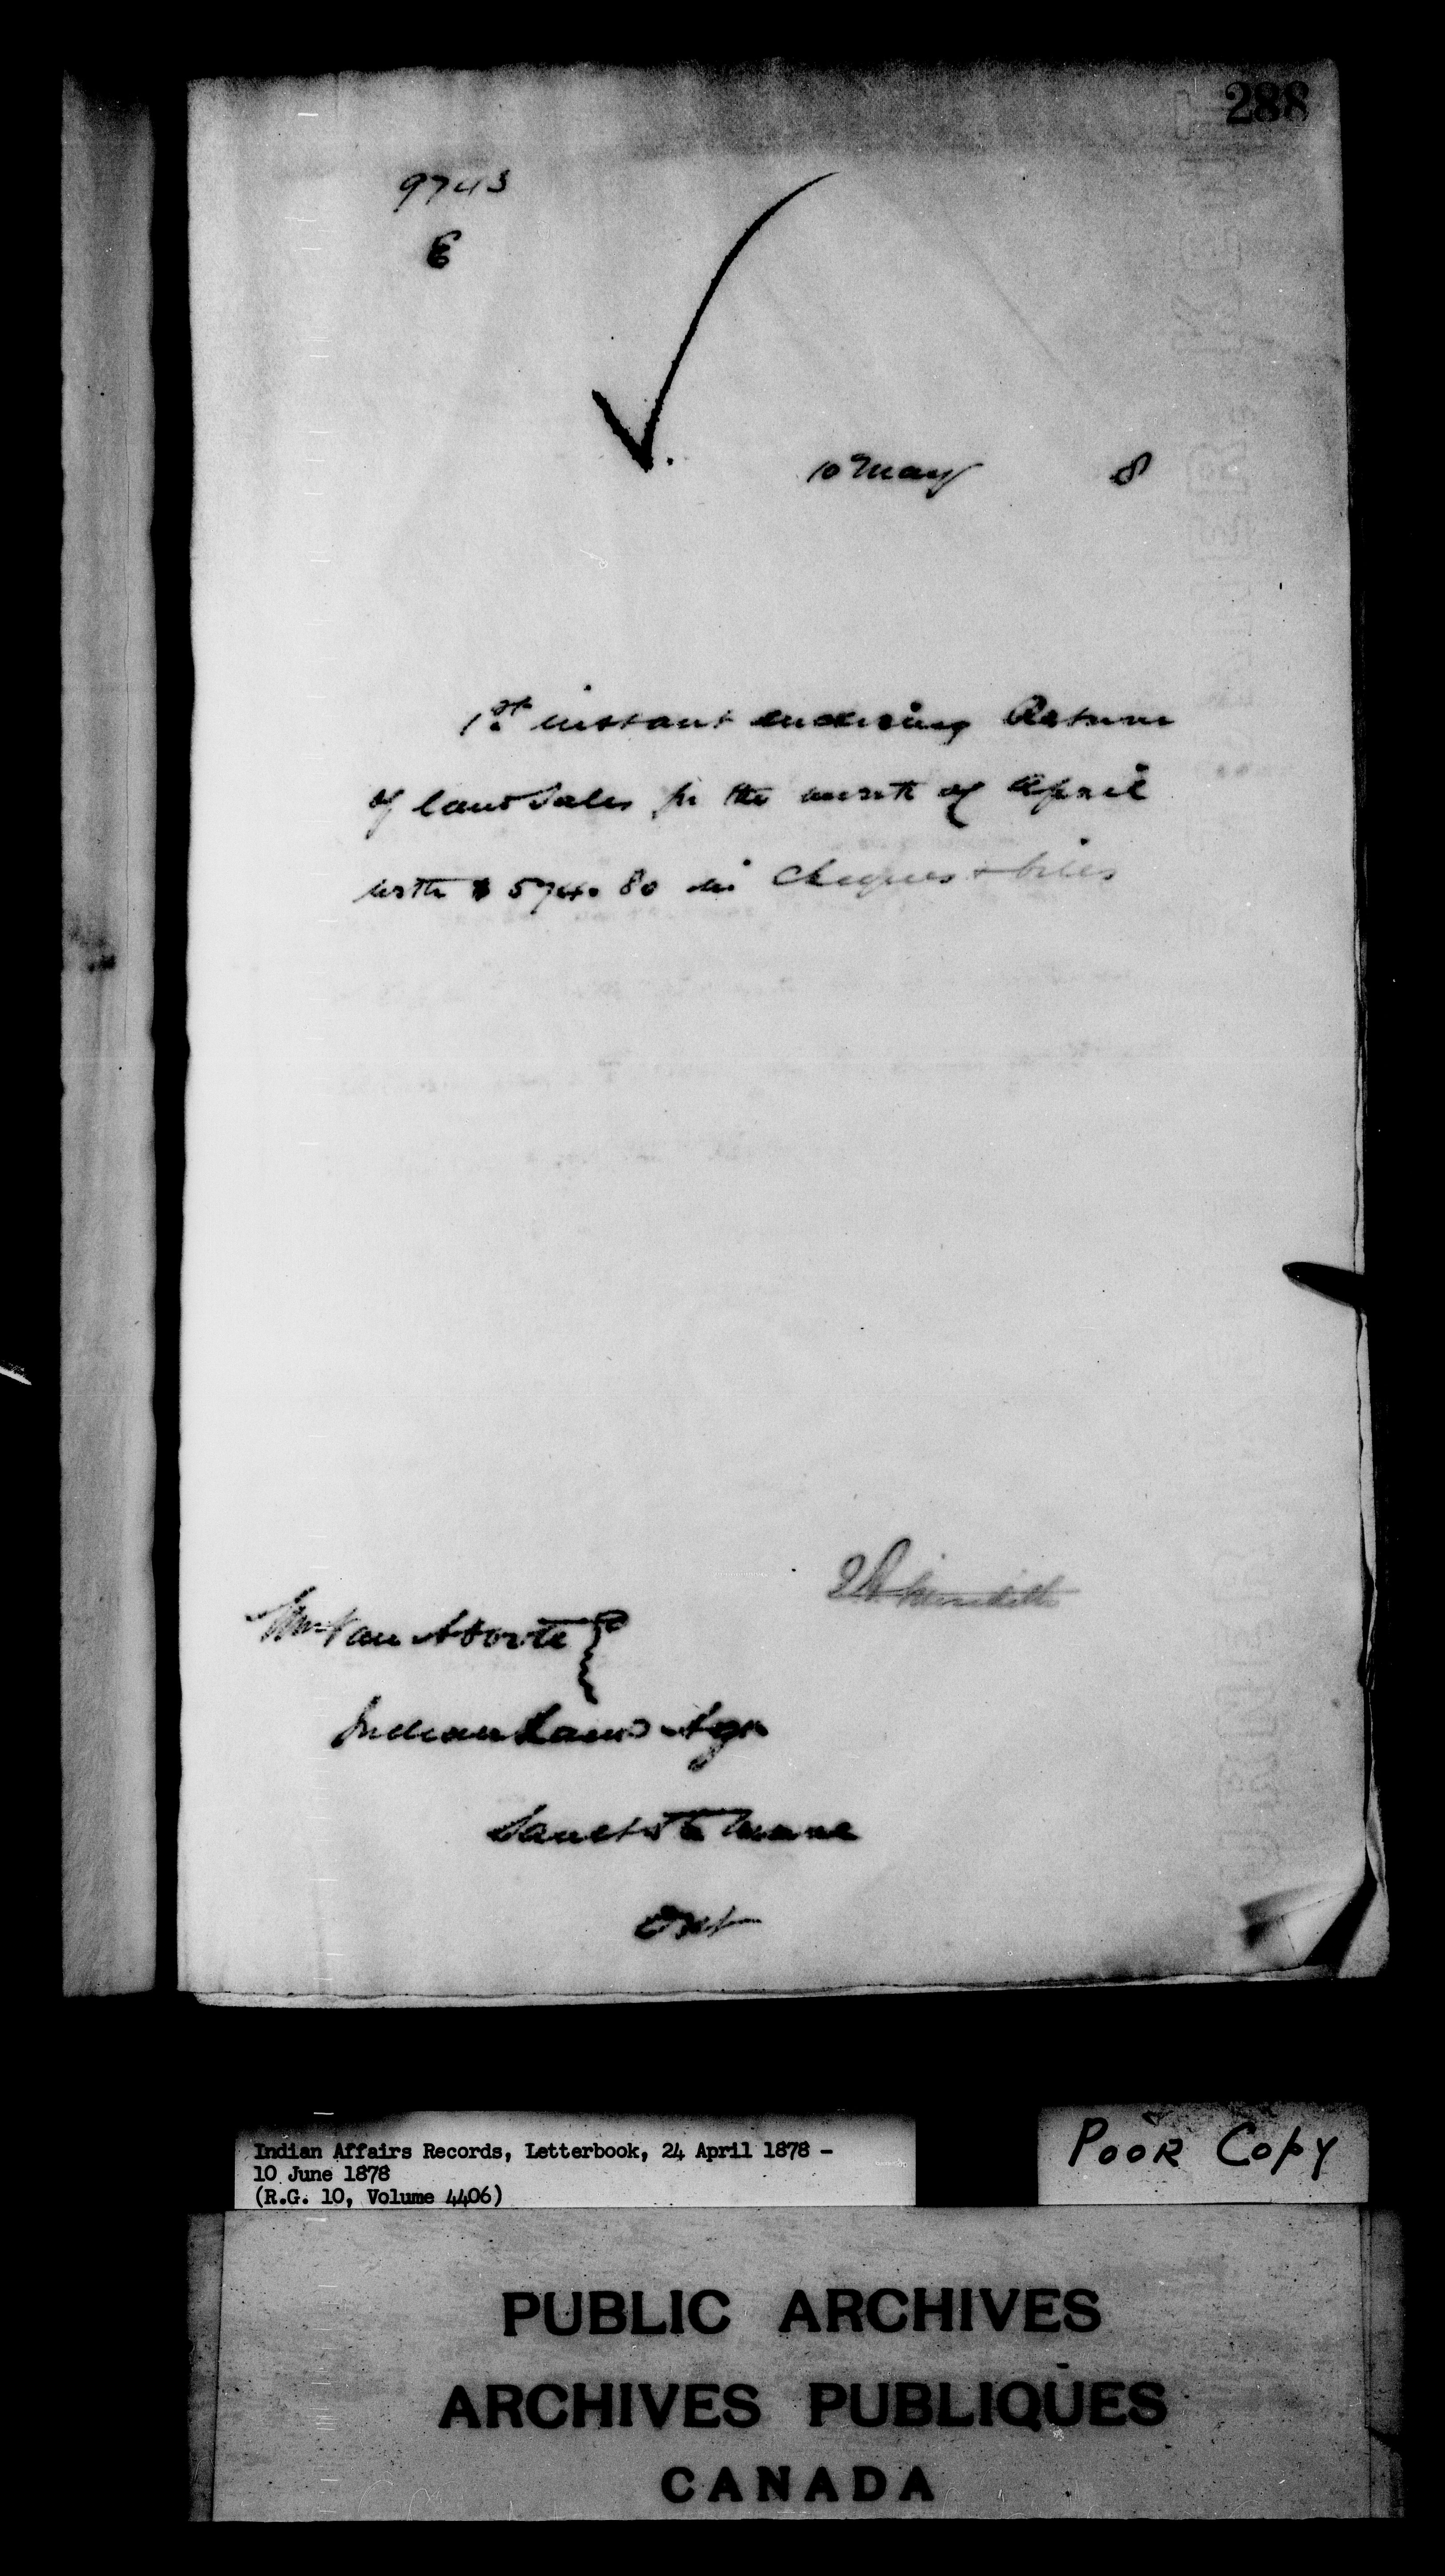 288
9743
E
10 May 8
1st instant enclosing Return
of land sales for the month of April
with $574.80 in Cheques & bills
Wm Van Abbott
Indian Land Agt
Sault Ste Marie
Ont
Indian Affairs Records, Letterbook, 24 April 1878 -
10 June 1878
(R.G. 10, Volume 4406)
POOR COPY
PUBLIC ARCHIVES
ARCHIVES PUBLIQUES
CANADA